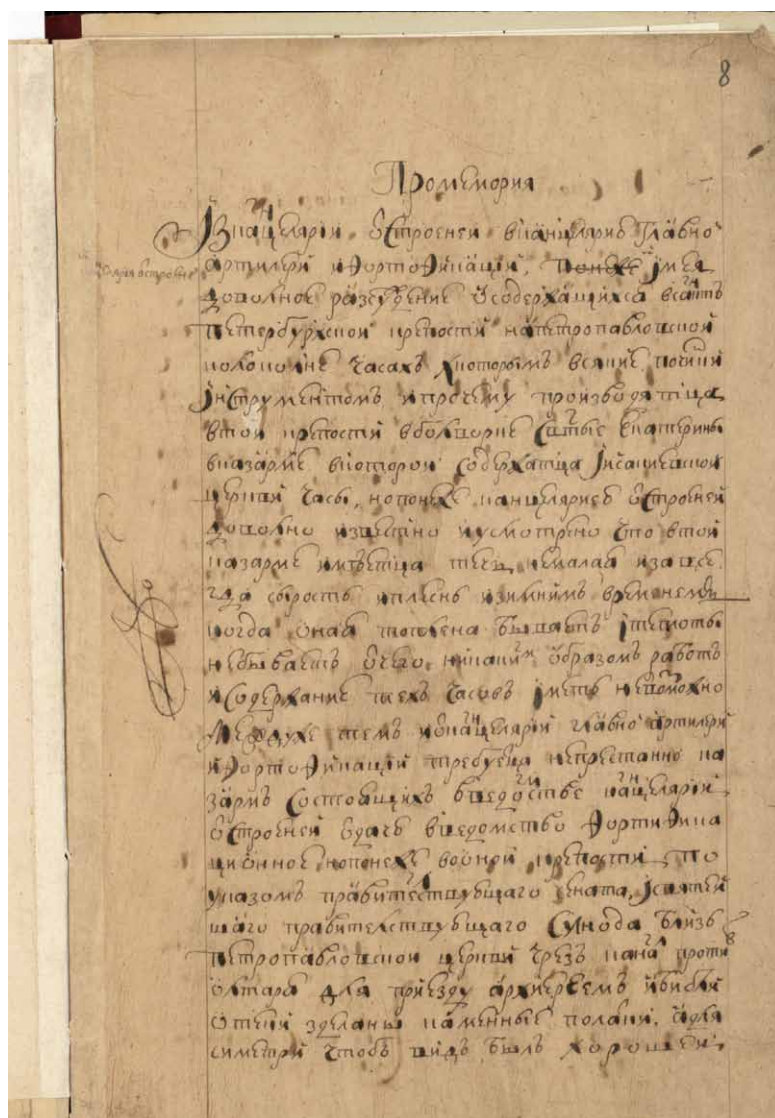 8
Промемория
Із канцелярїи ѿ строеней в канцелярию Главно
артилерїи и фортофикацїи, понеже імея
доволное разсуждение о содержащихса в санктъ
петербурхской крепости на петропавловской
колоколне часахъ х которымъ всякие починки
інструментомъ и протчему производятца
в той крепости в болворке святые Екатерины
в казарме в которой содержатца Ісакиевской
церкви часы, но понеже канцеляриею ѿ строеней
доволно известно и усмотрено что в той
казарме имѣетца течь немалая и завсе
гда сырость и плеснь и зимнимъ временемъ
когда оная топлена бываетъ и теплоты
не бываетъ ѿ чего никакимъ образомъ работъ
и содержание техъ часовъ иметь невозможно
Между же темъ и канцелярїи главно артилерїи
и фортофикацїи требуетца непрестанно ка
зармъ состоящихъ в ведомстве канцелярїи
ѿ строеней ѿдачѣ в ведомство фортифика
ционное но понеже в оной крепости по
указомъ правителствующаго сената, и святей
шаго правителствующаго Сѵнода близь
петропавловской церкви чрезъ каналъ против
олтаря для приезду архиереемъ и библи
отеки зделаны каменные полаты, а для
симетрїи чтобъ видъ былъ хорошей